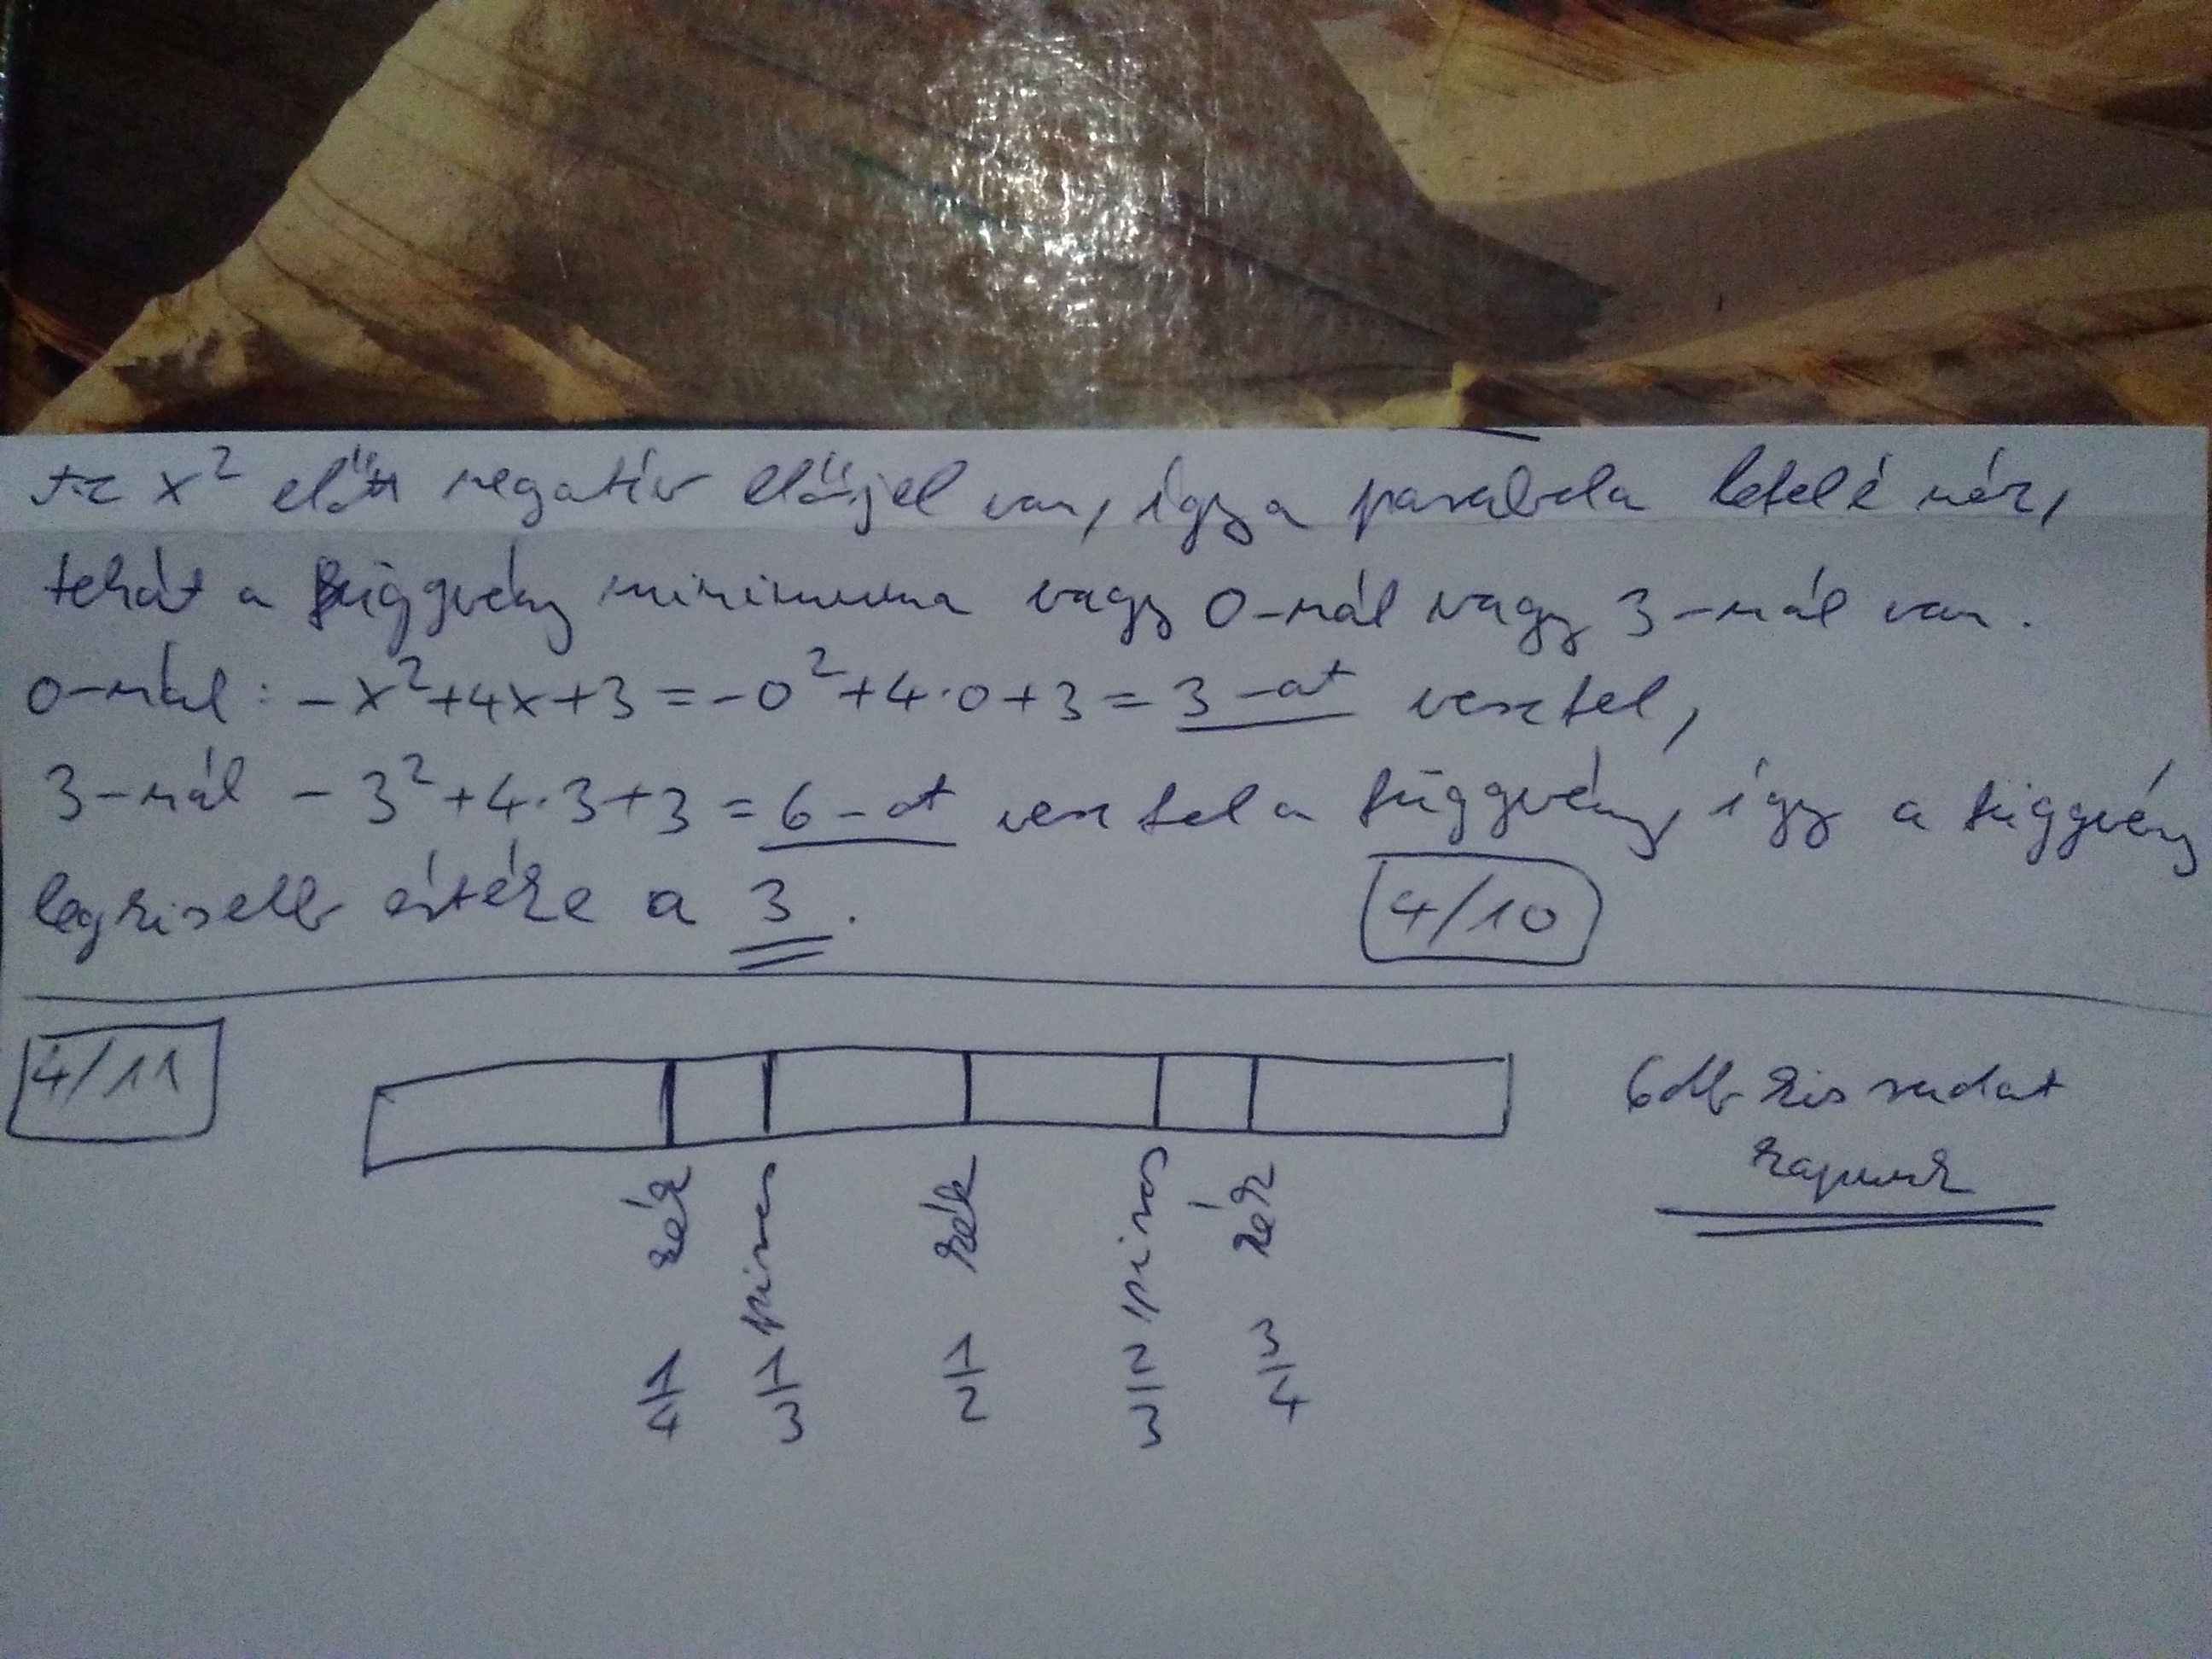 Az x² előtt negatív előjel van, így a parabola lefelé néz,
tehát a függvény minimuma vagy 0-nál vagy 3-nál van.
0-nál: -x²+4x+3 = -0²+4·0+3 = 3-at vesz fel,
3-nál -3²+4·3+3 = 6-ot vesz fel a függvény, így a függvény
legkisebb értéke a 3.
4/10
4/11
6 db kis rudat
kapunk
kék piros kék piros kék
1/4 1/3 1/2 2/3 3/4